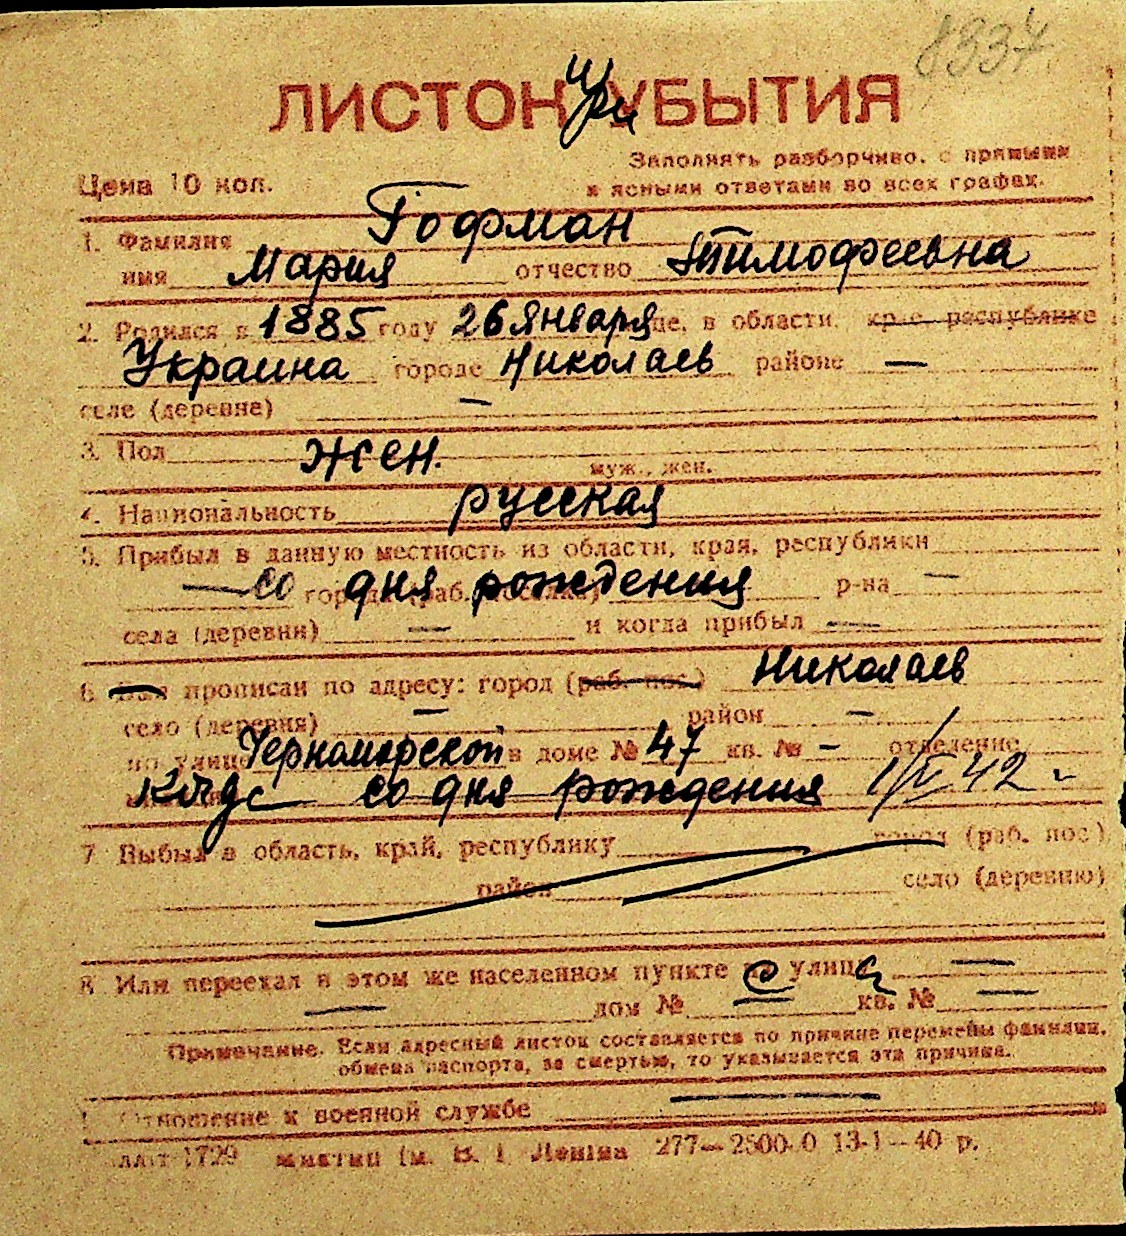 8337
ЛИСТОК при УБЫТИЯ
Цена 10 коп.
Заполнять разборчиво, с прямыми
и ясными ответами во всех графах.
1. Фамилия Гофман
имя Мария отчество Тимофеевна
2. Родился в 1885 году 26 января це, в области, крае, республике
Украина городе Николаев районе —
селе (деревне) —
3. Пол жен.
муж., жен.
4. Национальность русская
5. Прибыл в данную местность из области, края, республики
— со дня рождения р-на —
села (деревни) — и когда прибыл —
6 прописан по адресу: город (раб. пос.) Николаев
село (деревня) — район —
по улице Черноморской в доме № 47 кв. № — отделение
со дня рождения 42
7 Выбыл в область, край, республику город (раб. пос.)
район село (деревню)
8 Или переехал в этом же населенном пункте с улицы —
— дом № — кв. № —
Примечание. Если адресный листок составляется по причине перемены фамилии,
обмена паспорта, за смертью, то указывается эта причина.
Отношение к военной службе —
1729 ім. В. І. Леніна 277—2500.0 13-1—40 р.